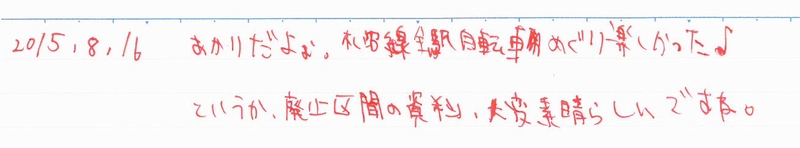 2015.8.16 あかりだよぉ。札沼線全駅自転車めぐり楽しかった♪
というか、廃止区間の資料、大変素晴らしいですね。